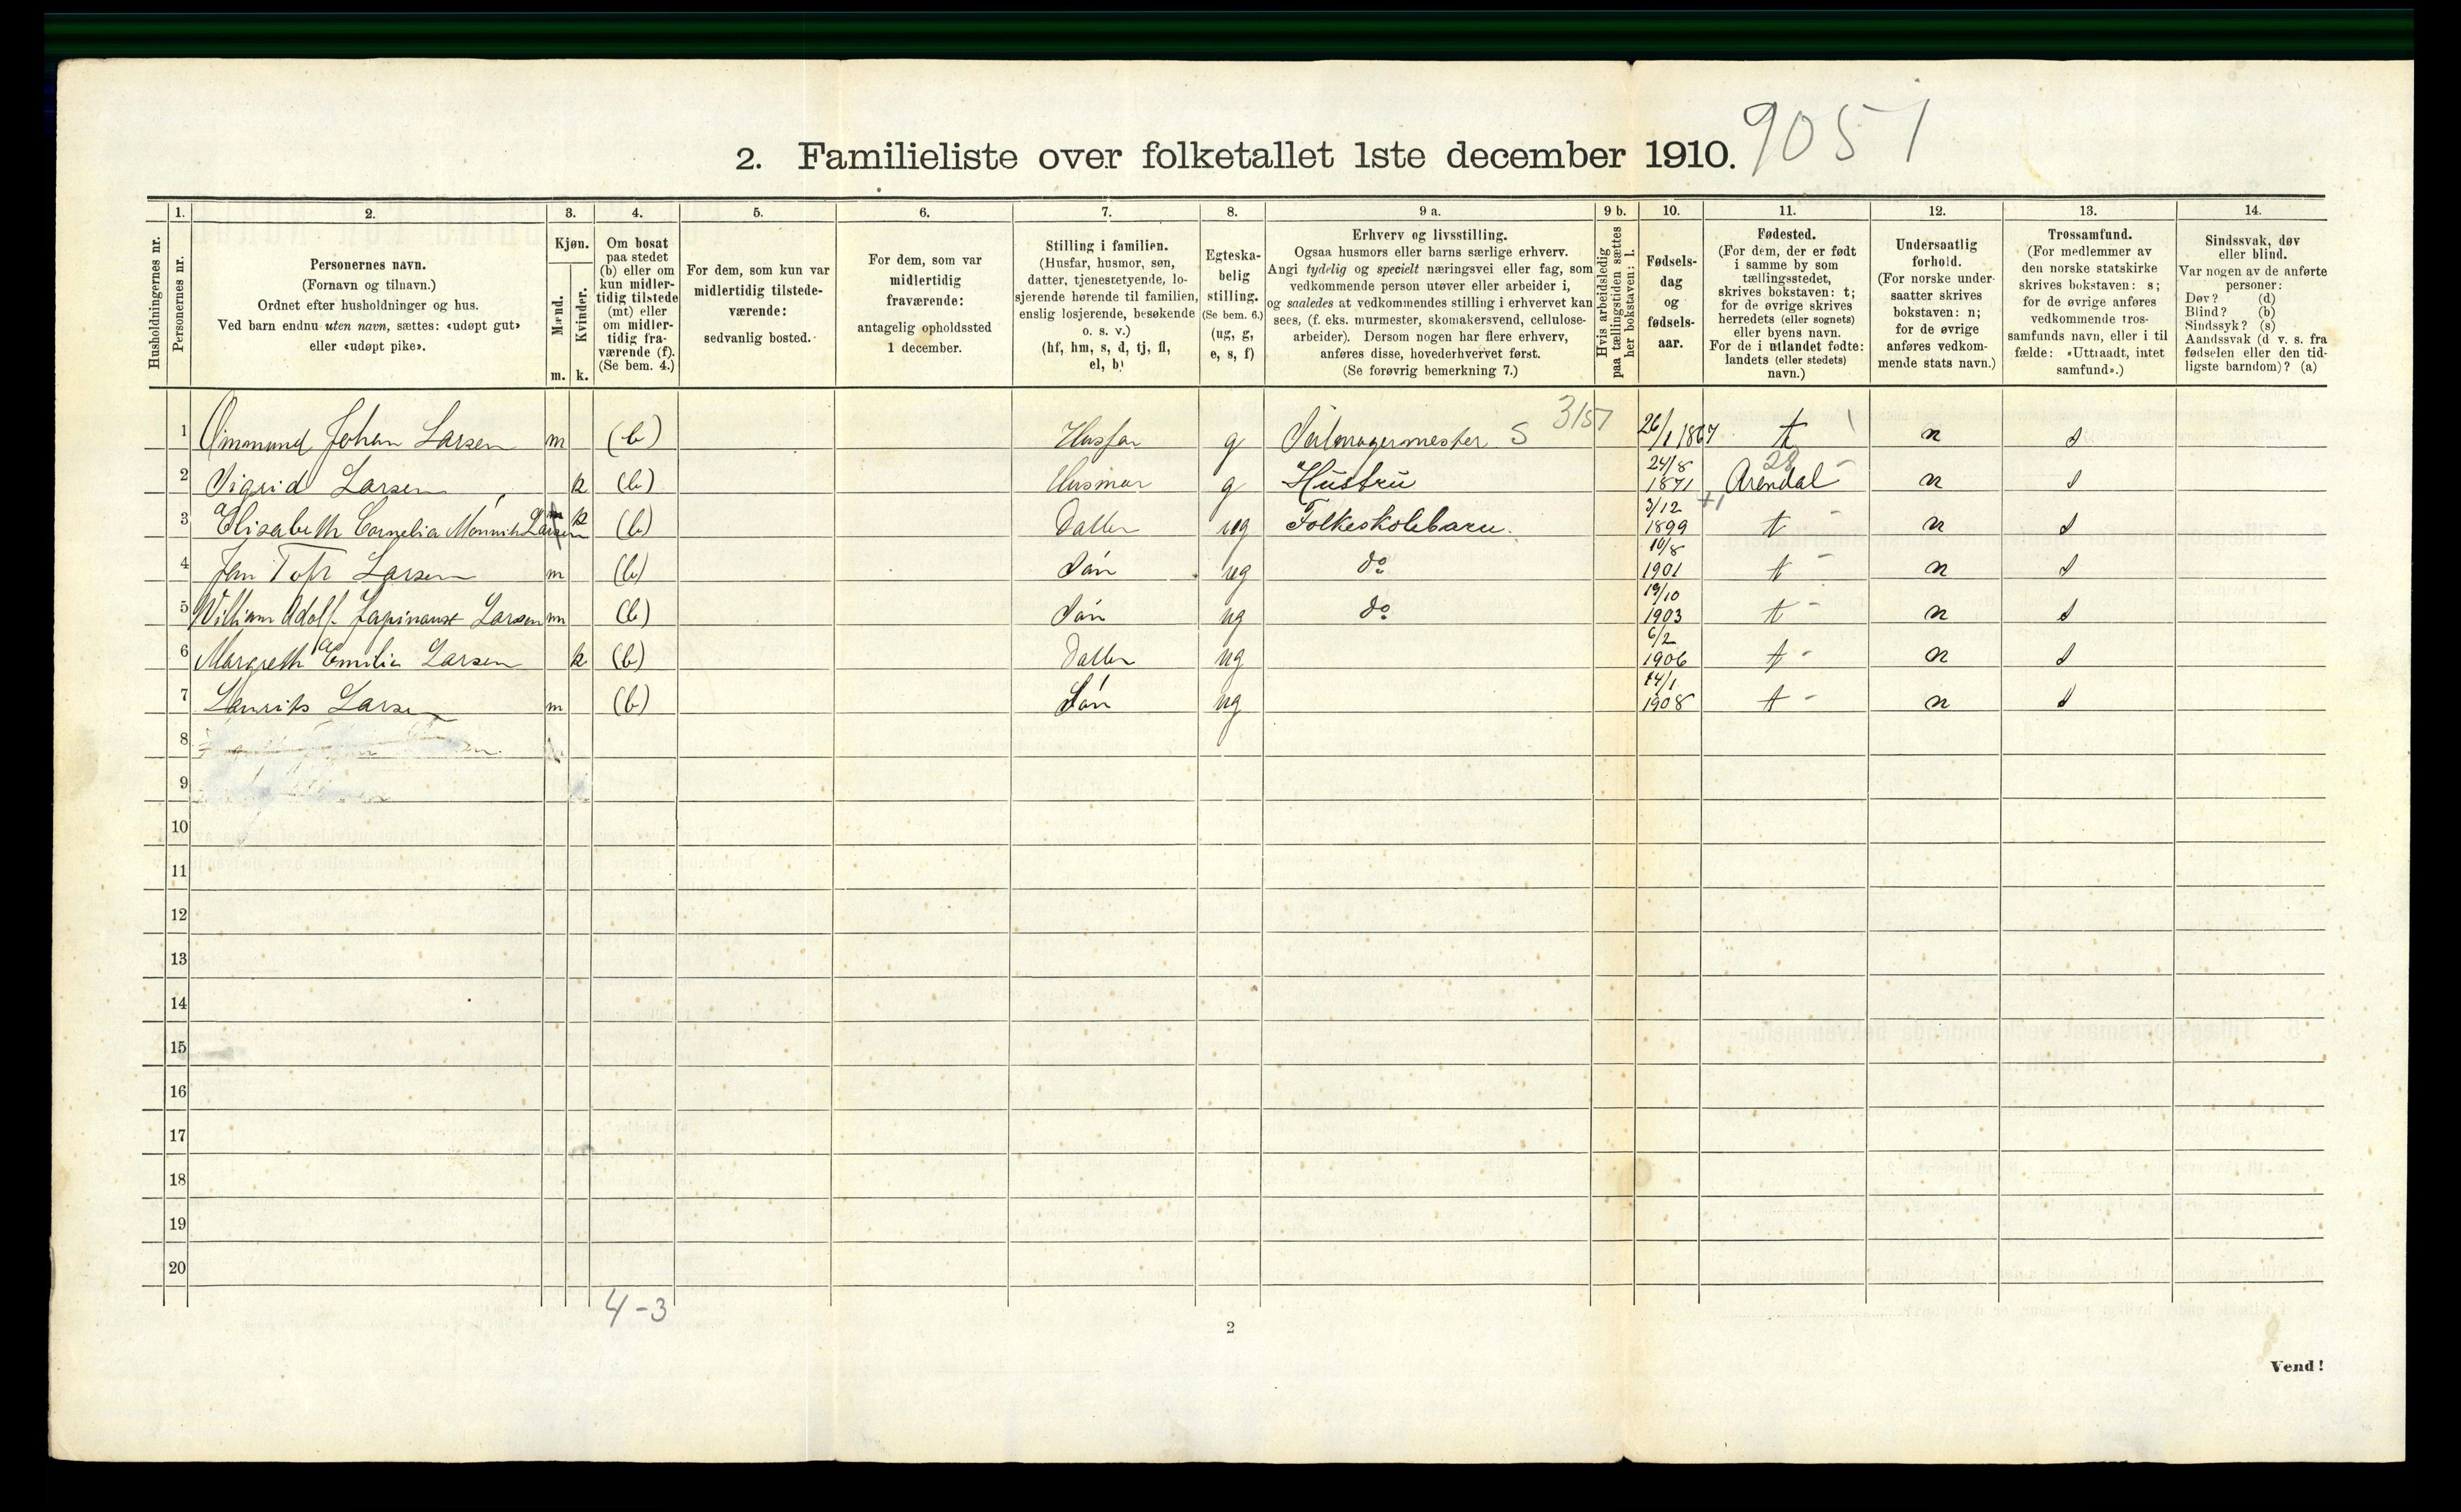 9051
2. Familieliste over folketallet 1ste december 1910.
Husholdningernes nr.
1.
Personernes nr.
2.
Personernes navn.
(Fornavn og tilnavn.)
Ordnet efter husholdninger og hus.
Ved barn endnu uten navn, sættes: «udøpt gut»
eller «udøpt pike».
3.
Kjøn.
Mænd.
Kvinder.
m. k.
4.
Om bosat
paa stedet
(b) eller om
kun midler-
tidig tilstede
(mt) eller
om midler-
tidig fra-
værende (f).
(Se bem. 4.)
5.
For dem, som kun var
midlertidig tilstede-
værende:
sedvanlig bosted.
6.
For dem, som var
midlertidig
fraværende:
antagelig opholdssted
1 december.
7.
Stilling i familien.
(Husfar, husmor, søn,
datter, tjenestetyende, lo-
sjerende hørende til familien,
enslig losjerende, besøkende
o. s. v.)
(hf, hm, s, d, tj, fl,
el, b)
8.
Egteska-
belig
stilling.
(Se bem. 6.)
(ug, g,
e, s, f)
9 a.
Erhverv og livsstilling.
Ogsaa husmors eller barns særlige erhverv.
Angi tydelig og specielt næringsvei eller fag, som
vedkommende person utøver eller arbeider i,
og saaledes at vedkommendes stilling i erhvervet kan
sees, (f. eks. murmester, skomakersvend, cellulose-
arbeider). Dersom nogen har flere erhverv,
anføres disse, hovederhvervet først.
(Se forøvrig bemerkning 7.)
9 b.
Hvis arbeidsledig
paa tællingstiden sættes
her bokstaven: l.
10.
Fødsels-
dag
og
fødsels-
aar.
11.
Fødested.
(For dem, der er født
i samme by som
tællingsstedet,
skrives bokstaven: t;
for de øvrige skrives
herredets (eller sognets)
eller byens navn.
For de i utlandet fødte:
landets (eller stedets)
navn.)
12.
Undersaatlig
forhold.
(For norske under-
saatter skrives
bokstaven: n;
for de øvrige
anføres vedkom-
mende stats navn.)
13.
Trossamfund.
(For medlemmer av
den norske statskirke
skrives bokstaven: s;
for de øvrige anføres
vedkommende tros-
samfunds navn, eller i til
fælde: «Uttraadt, intet
samfund».)
14.
Sindssvak, døv
eller blind.
Var nogen av de anførte
personer:
Døv? (d)
Blind? (b)
Sindssyk? (s)
Aandssvak (d v. s. fra
fødselen eller den tid-
ligste barndom)? (a)
1 Ommund Johan Larsen m (b) Husfar g Seilmagermester S 3157 26/1 1867 t n s
2 Sigrid Larsen k (b) Husmor g Hustru 24/8 1871 Arendal 28 n s
3 Elisabeth Cornelia Larsen k (b) Datter ug Folkeskolebarn. 3/12 1899 t n s
4 Jan Larsen m (b) Sön ug do 10/8 1901 t n s
5 William Adolf Larsen m (b) Sön ug do 19/10 1903 t n s
6 Margreth Emilia Larsen k (b) Datter ug 6/2 1906 t n s
7 Laurits Larsen m (b) Sön ug 14/1 1908 t n s
8
9
10
11
12
13
14
15
16
17
18
19
20
4-3
2
Vend!